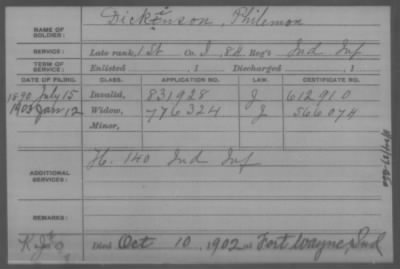 NAME OF SOLDIER: Dickinson, Philemon
SERVICE: Late rank, 1 St Co. I, 88 Reg't Ind Inf
TERM OF SERVICE: Enlisted , 1 Discharged , 1
DATE OF FILING. CLASS. APPLICATION NO. LAW. CERTIFICATE NO.
1890 July 15 Invalid, 831928 J 612910
1903 Jan 12 Widow, 776324 J 566074
Minor,
ADDITIONAL SERVICES: H. 140 Ind Inf
REMARKS:
Died Oct 10, 1902 at Fort Wayne, Ind